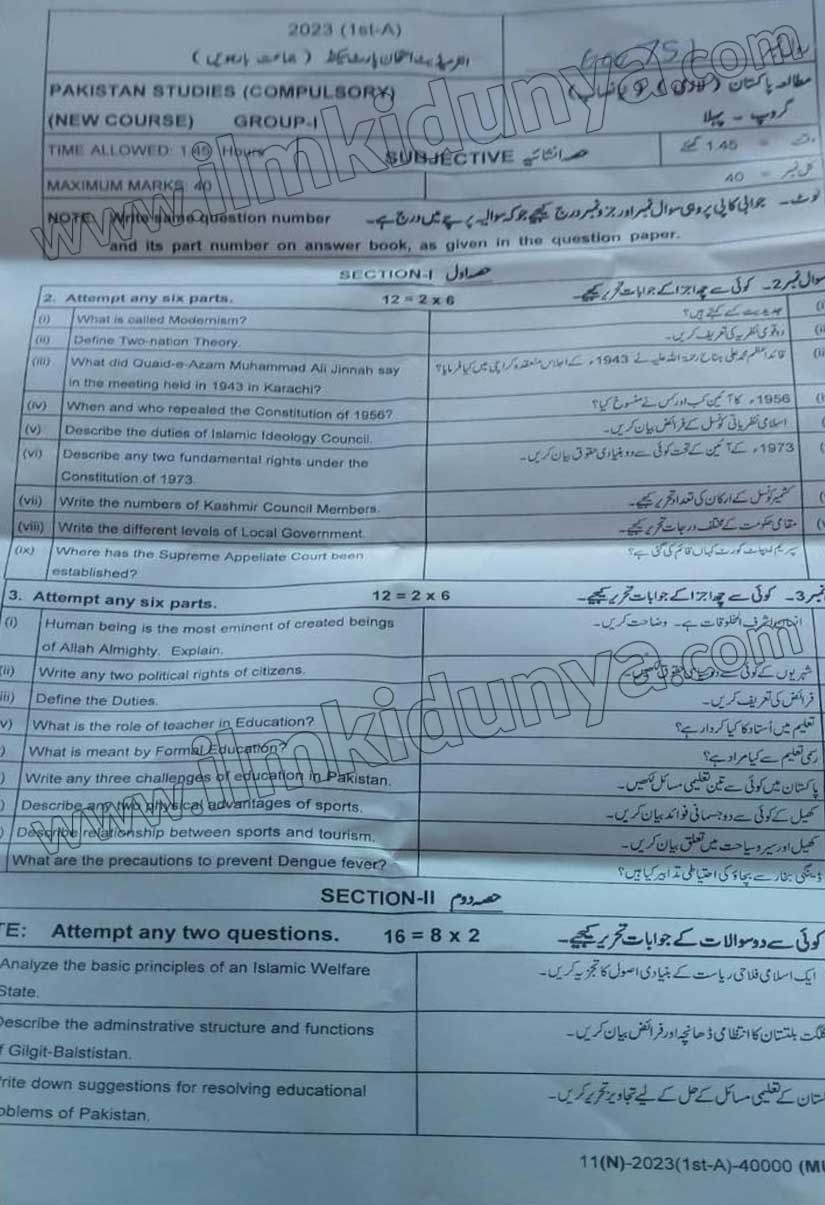 2023 (1st-A)
PAKISTAN STUDIES (COMPULSORY)
مطالعہ پاکستان
(NEW COURSE) GROUP-I
گروپ - پہلا
TIME ALLOWED: 1.45 Hours
SUBJECTIVE حصہ انشائیہ
وقت = 1.45 گھنٹے
MAXIMUM MARKS: 40
کل نمبر = 40
NOTE: Write same question number
نوٹ۔ جوابی کاپی پر وہی سوال نمبر اور جزو نمبر درج کیجیے جو کہ سوالیہ پرچے میں درج ہے۔
and its part number on answer book, as given in the question paper.
SECTION-I حصہ اول
2. Attempt any six parts. 12 = 2 x 6
سوال نمبر 2۔ کوئی سے چھ اجزا کے جوابات تحریر کیجیے۔
(i) What is called Modernism?
جدیدیت کسے کہتے ہیں؟
(ii) Define Two-nation Theory.
دو قومی نظریہ کی تعریف کریں۔
(iii) What did Quaid-e-Azam Muhammad Ali Jinnah say
in the meeting held in 1943 in Karachi?
قائداعظم محمد علی جناح رحمۃ اللہ علیہ نے 1943ء کے اجلاس منعقدہ کراچی میں کیا فرمایا؟
(iv) When and who repealed the Constitution of 1956?
1956ء کا آئین کب اور کس نے منسوخ کیا؟
(v) Describe the duties of Islamic Ideology Council.
اسلامی نظریاتی کونسل کے فرائض بیان کریں۔
(vi) Describe any two fundamental rights under the
Constitution of 1973.
1973ء کے آئین کے تحت کوئی سے دو بنیادی حقوق بیان کریں۔
(vii) Write the numbers of Kashmir Council Members.
کشمیر کونسل کے ارکان کی تعداد تحریر کیجیے۔
(viii) Write the different levels of Local Government.
مقامی حکومت کے مختلف درجات تحریر کیجیے۔
(ix) Where has the Supreme Appellate Court been
established?
سپریم اپیلٹ کورٹ کہاں قائم کی گئی ہے؟
3. Attempt any six parts. 12 = 2 x 6
نمبر 3۔ کوئی سے چھ اجزا کے جوابات تحریر کیجیے۔
(i) Human being is the most eminent of created beings
of Allah Almighty. Explain.
انسان اشرف المخلوقات ہے۔ وضاحت کریں۔
(ii) Write any two political rights of citizens.
شہریوں کے کوئی سے دو سیاسی حقوق لکھیں۔
iii) Define the Duties.
فرائض کی تعریف کریں۔
v) What is the role of teacher in Education?
تعلیم میں اُستاد کا کیا کردار ہے؟
) What is meant by Formal Education?
رسمی تعلیم سے کیا مراد ہے؟
) Write any three challenges of education in Pakistan.
پاکستان میں کوئی سے تین تعلیمی مسائل لکھیں۔
) Describe any two physical advantages of sports.
کھیل کے کوئی سے دو جسمانی فوائد بیان کریں۔
) Describe relationship between sports and tourism.
کھیل اور سیر و سیاحت میں تعلق بیان کریں۔
What are the precautions to prevent Dengue fever?
ڈینگی بخار سے بچاؤ کی احتیاطی تدابیر کیا ہیں؟
SECTION-II حصہ دوم
TE: Attempt any two questions. 16 = 8 x 2
کوئی سے دو سوالات کے جوابات تحریر کیجیے۔
Analyze the basic principles of an Islamic Welfare
State.
ایک اسلامی فلاحی ریاست کے بنیادی اصول کا تجزیہ کریں۔
Describe the adminstrative structure and functions
f Gilgit-Balstistan.
گلگت بلتستان کا انتظامی ڈھانچہ اور فرائض بیان کریں۔
rite down suggestions for resolving educational
oblems of Pakistan.
ستان کے تعلیمی مسائل کے حل کے لیے تجاویز تحریر کریں۔
11(N)-2023(1st-A)-40000 (MU
www.ilmkidunya.com
www.ilmkidunya.com